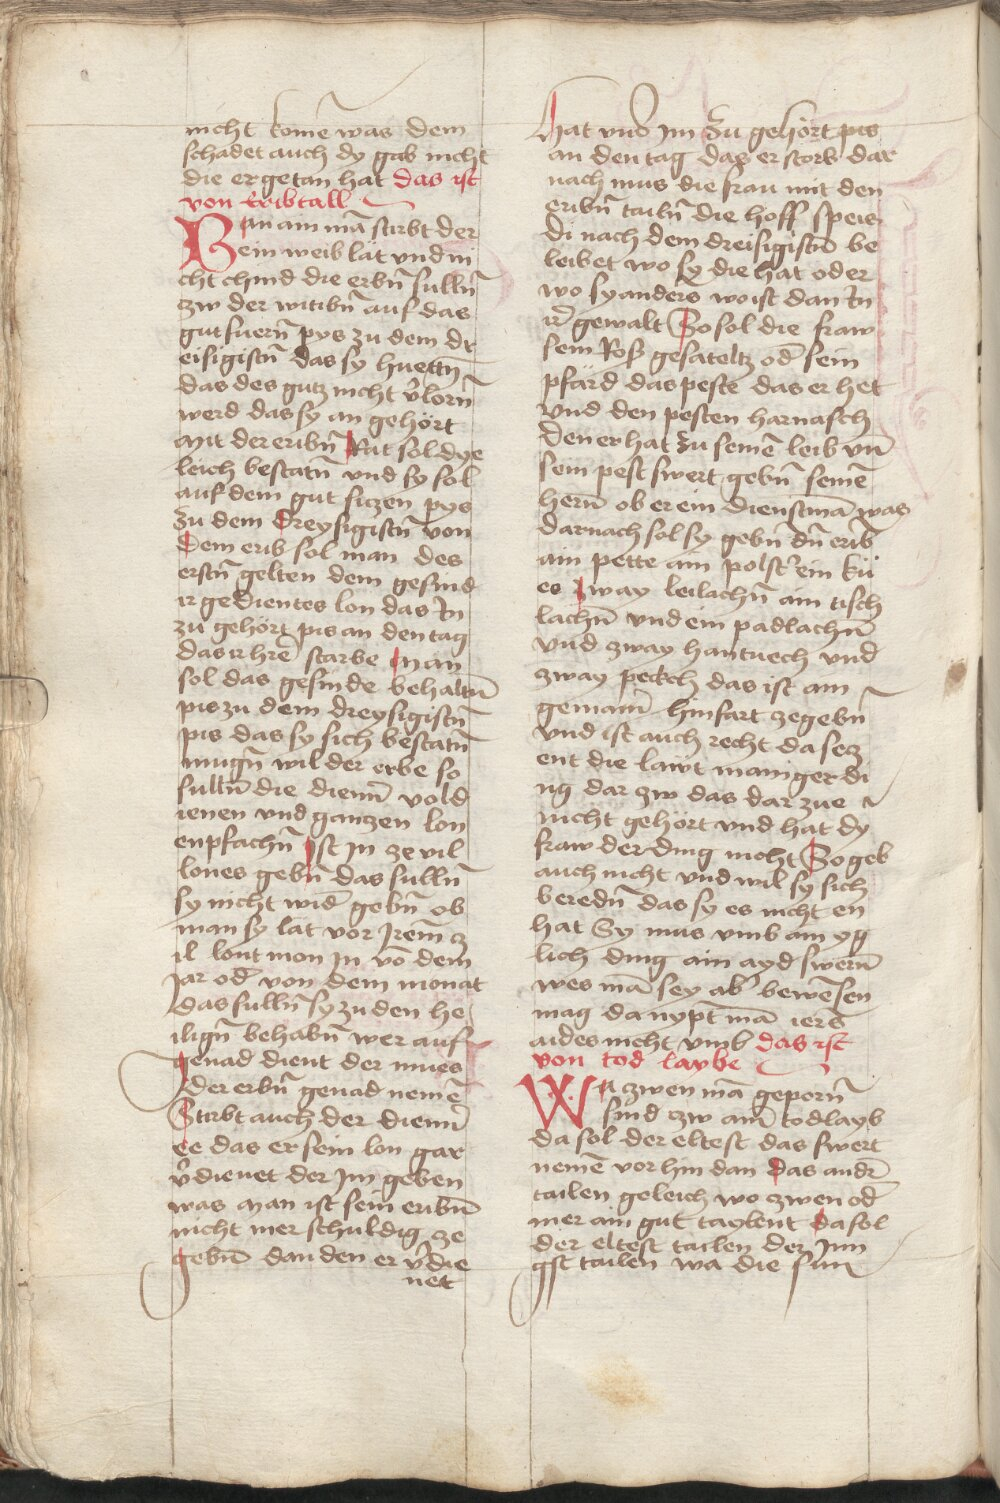 nicht komē was dem
schadet auch dy gab nicht
die er getan hat das ist
von Eribtall
Wan ain mā stirbt der
ein weib lāt vnd ni
cht chind die erbn̄ sulln̄
zw der witibn̄ auf das
gut fuern̄ pys zu dem dr
eisigistn̄ das sy huettn̄
das des gutz nicht v̄lorn̄
werd das sy an gehört
Mit der eribn̄ Rat sol dye
leich bestatn̄ vnd sy sol
auf dem gut siczen pys
zu dem dreysigistn̄ von
dem erib sol man des
erstn̄ gelten dem gesind
ir gedientes lon das In
zu gehört pis an den tag
das ir hrē starbe Man
sol das gesinde behaltn̄
pis zu dem dreysigistn̄
pis das sy sich bestatn̄
mugn̄ wil der erbe so
sulln̄ die dienn̄ vold
ienen vnd ganczen lon
enpfachn̄ Ist In ze vil
lones gebn̄ das sulln̄
sy nicht wid̄ gebn̄ ob
man sy lāt vor Irem z
il lont mon In vō dem
jar od̄ von dem monat
das sulln̄ sy zu den he
ilign̄ behabn̄ wer auf
genad dient der mues
der erbn̄ genad nemē
Stirbt auch der dienn̄
ee das er sein lon gar
v̄dienet der Im geben
was Man ist sein eribn̄
nicht mer schuldig ze
gebn̄ dan den er v̄die
net
hat vnd Im zu gehört pis
an den tag das er storb dar
nach mus die frau mit den
eribn̄ tailn̄ die hoff speis
di nach dem dreisigistn̄ be
leibet wo sy die hat oder
wo sy anders wo ist dan In
ir̄ gewalt So sol die fraw
sein Roß gesateltz od̄ sein
pfärd das peste das er het
vnd den pesten harnasch
den er hat zu seinē leib vn̄
sein pest swert gebn̄ seinē
hern̄ ob er ein dienstmā was
darnach sol sy gebn̄ dn̄ erib
ain pette ain polst̄ ein kü
es zway leilachn̄ ain tisch
lachn̄ vnd ein padlachn̄
vnd zway hantuech vnd
zway peckch das ist ain
gemain̄ hinfart zegebn̄
vnd ist auch recht da secz
ent die lawt maniger di
ng dar zw das dar zue
nicht gehört vnd hat dy
fraw der ding nicht So geb
auch nicht vnd wil sy sich
beredn̄ das sy es nicht en
hat Sy mus vmb ain yg
lich ding ain ayd swern̄
wes mā sey ab̄ bewēsen
mag da nypt mā iers
aides nicht vmb das ist
von tod laybe
Wa zwen mā geporn̄
sind zw ain̄ todlayb
da sol der eltest das swert
nemē vor hin dan Das andr̄
tailen geleich wo zwen od̄
mer ain gut taylent da sol
der eltest tailen der Jun
gst tailen wa die sun